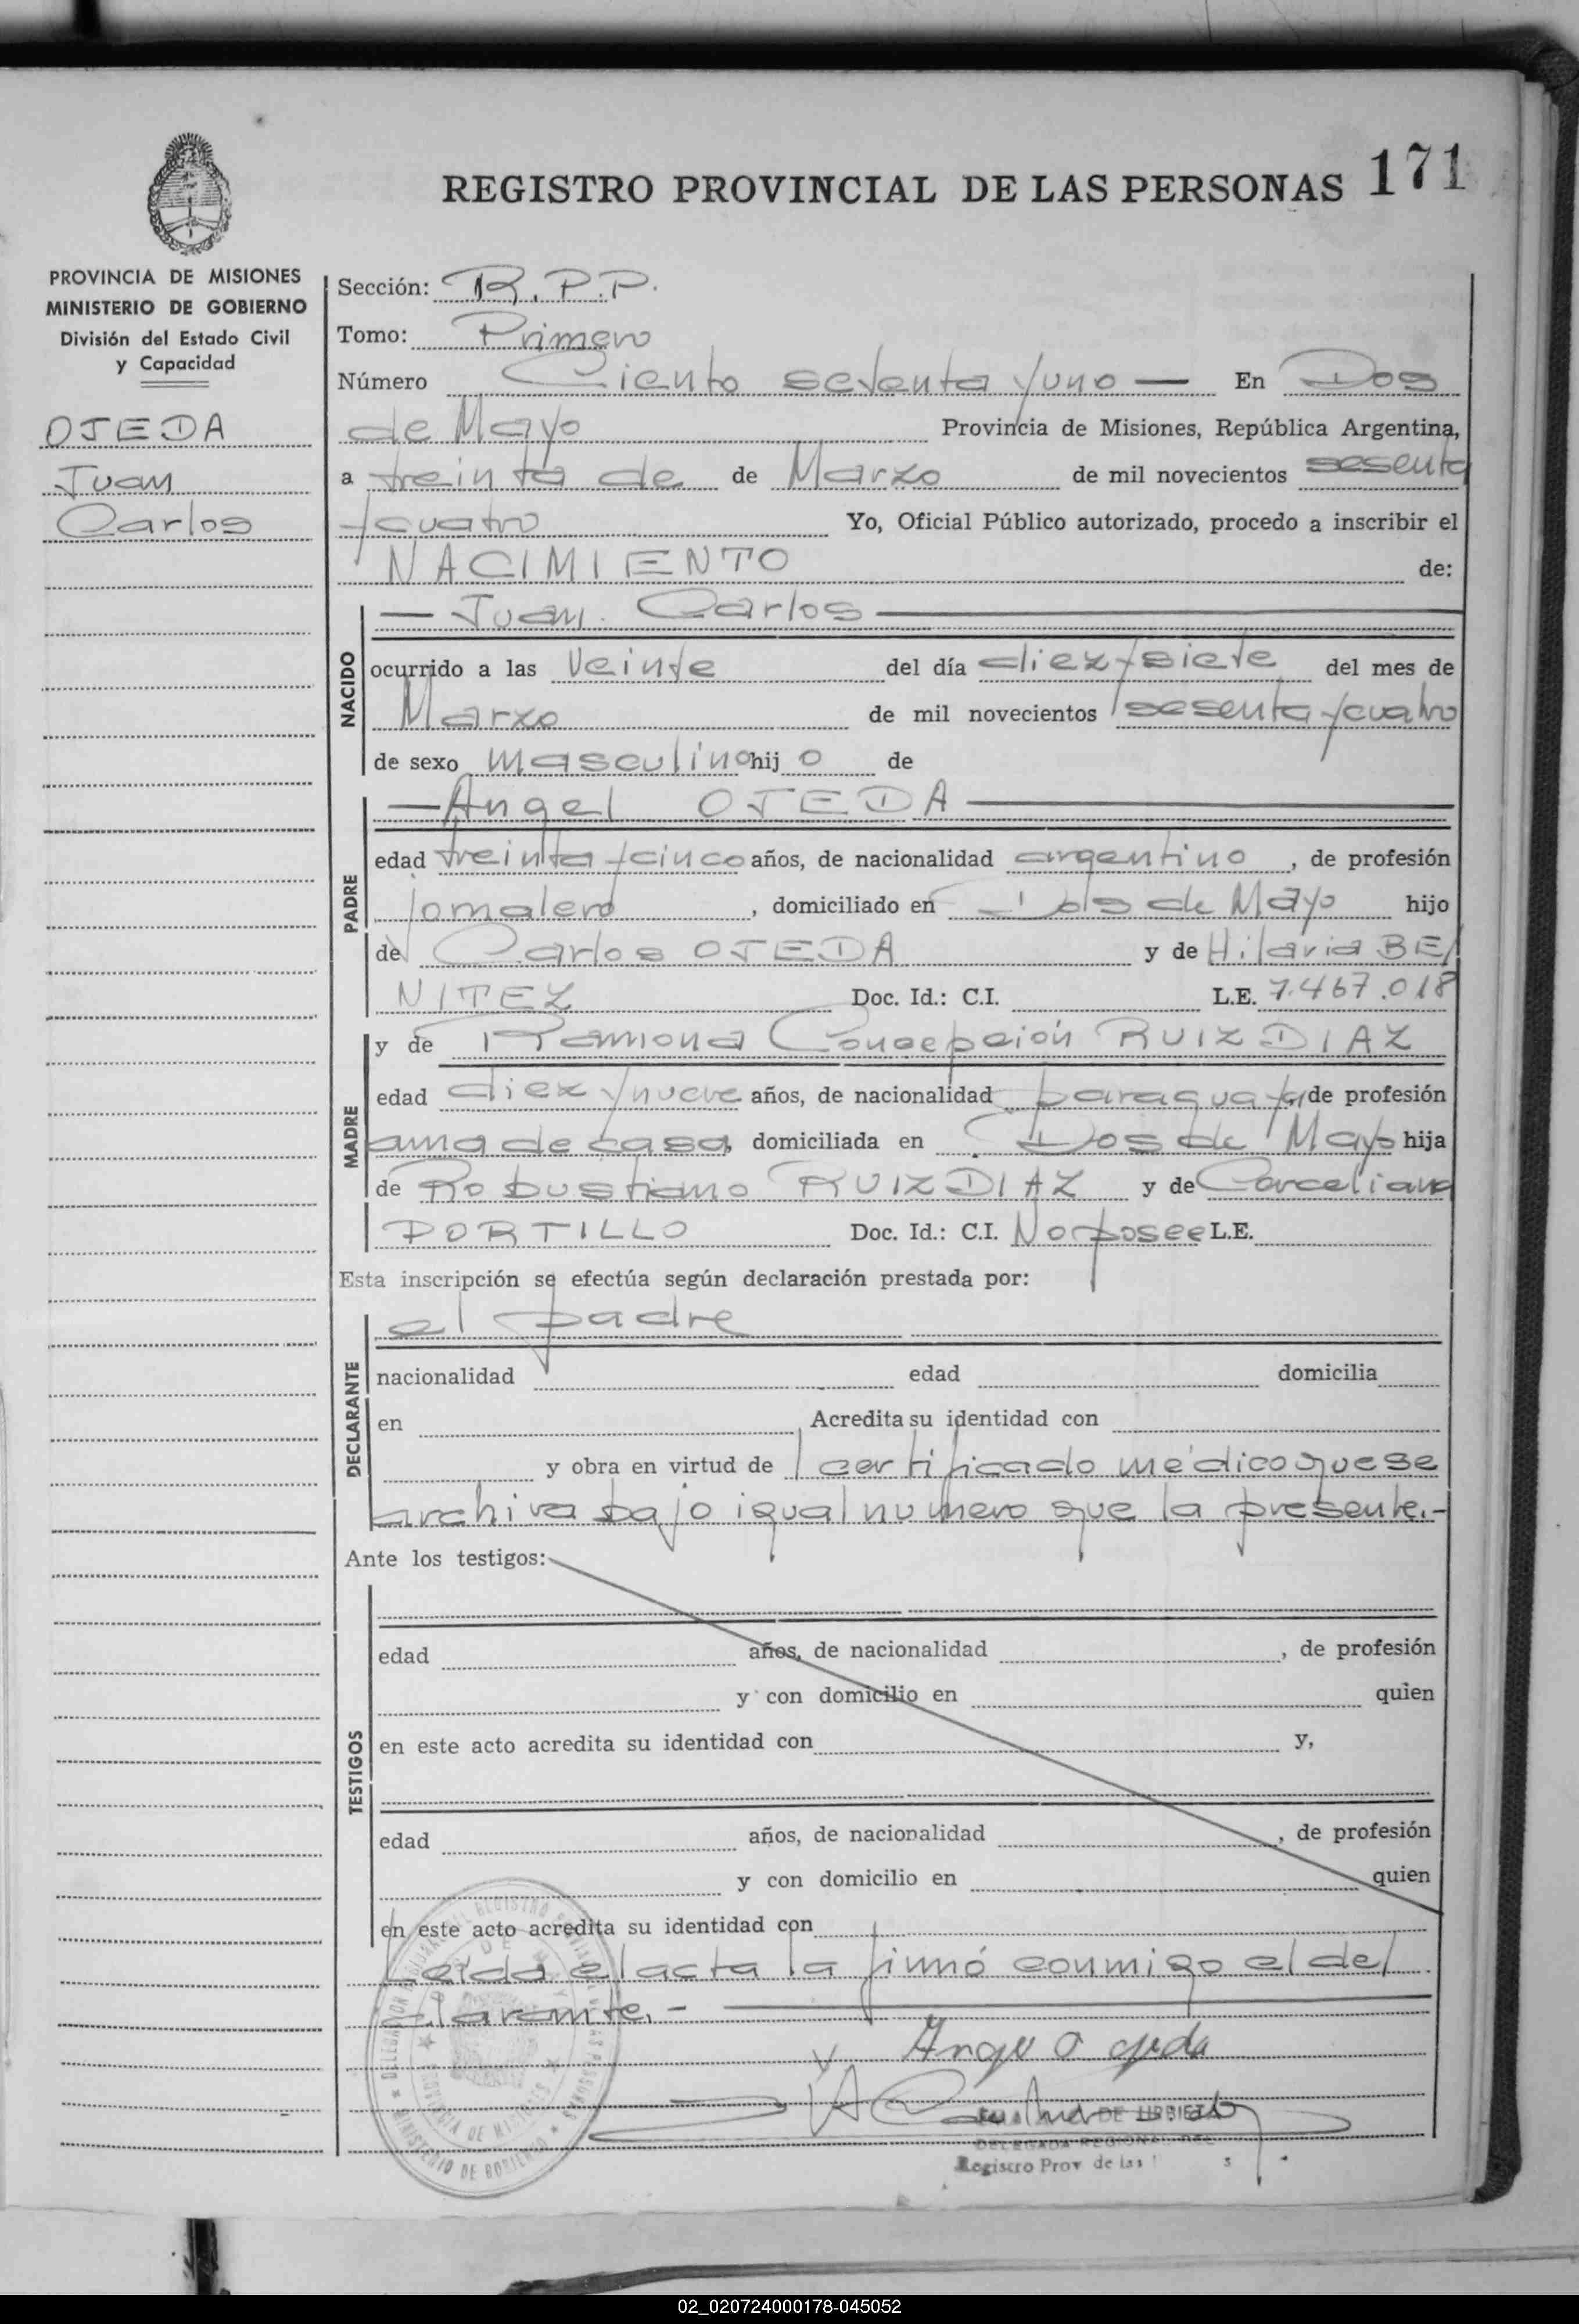 REGISTRO PROVINCIAL DE LAS PERSONAS 171
PROVINCIA DE MISIONES
MINISTERIO DE GOBIERNO
División del Estado Civil
y Capacidad
OJEDA
Juan
Carlos
Sección: R.P.P.
Tomo: Primero
Número Ciento setenta y uno — En Dos
de Mayo Provincia de Misiones, República Argentina,
a treinta de de Marzo de mil novecientos sesenta
y cuatro Yo, Oficial Público autorizado, procedo a inscribir el
NACIMIENTO de:
NACIDO
— Juan Carlos —
ocurrido a las Veinte del día diez y siete del mes de
Marzo de mil novecientos sesenta y cuatro
de sexo masculino hij o de
PADRE
— Angel OJEDA —
edad treinta y cinco años, de nacionalidad argentino, de profesión
jornalero, domiciliado en Dos de Mayo hijo
de Carlos OJEDA y de Hilaria BE/
NITEZ Doc. Id.: C.I. L.E. 7.467.018
MADRE
y de Ramona Concepción RUIZ DIAZ
edad diez y nueve años, de nacionalidad paraguaya, de profesión
ama de casa, domiciliada en Dos de Mayo hija
de Robustiano RUIZ DIAZ y de Carceliana
PORTILLO Doc. Id.: C.I. No posee L.E.
Esta inscripción se efectúa según declaración prestada por:
DECLARANTE
el padre
nacionalidad edad domicilia
en Acredita su identidad con
y obra en virtud de / certificado médico que se
archiva bajo igual numero que la presente.-
Ante los testigos:
TESTIGOS
edad años, de nacionalidad , de profesión
y con domicilio en quien
en este acto acredita su identidad con y,
edad años, de nacionalidad , de profesión
y con domicilio en quien
en este acto acredita su identidad con
Leída el acta la firmó conmigo el de/
clarante.-
Angel O ojeda
DE URBIETA
DELEGADA REGIONAL DEL
Registro Prov de las
MINISTERIO DE GOBIERNO
PROVINCIA DE MISIONES
02_020724000178-045052